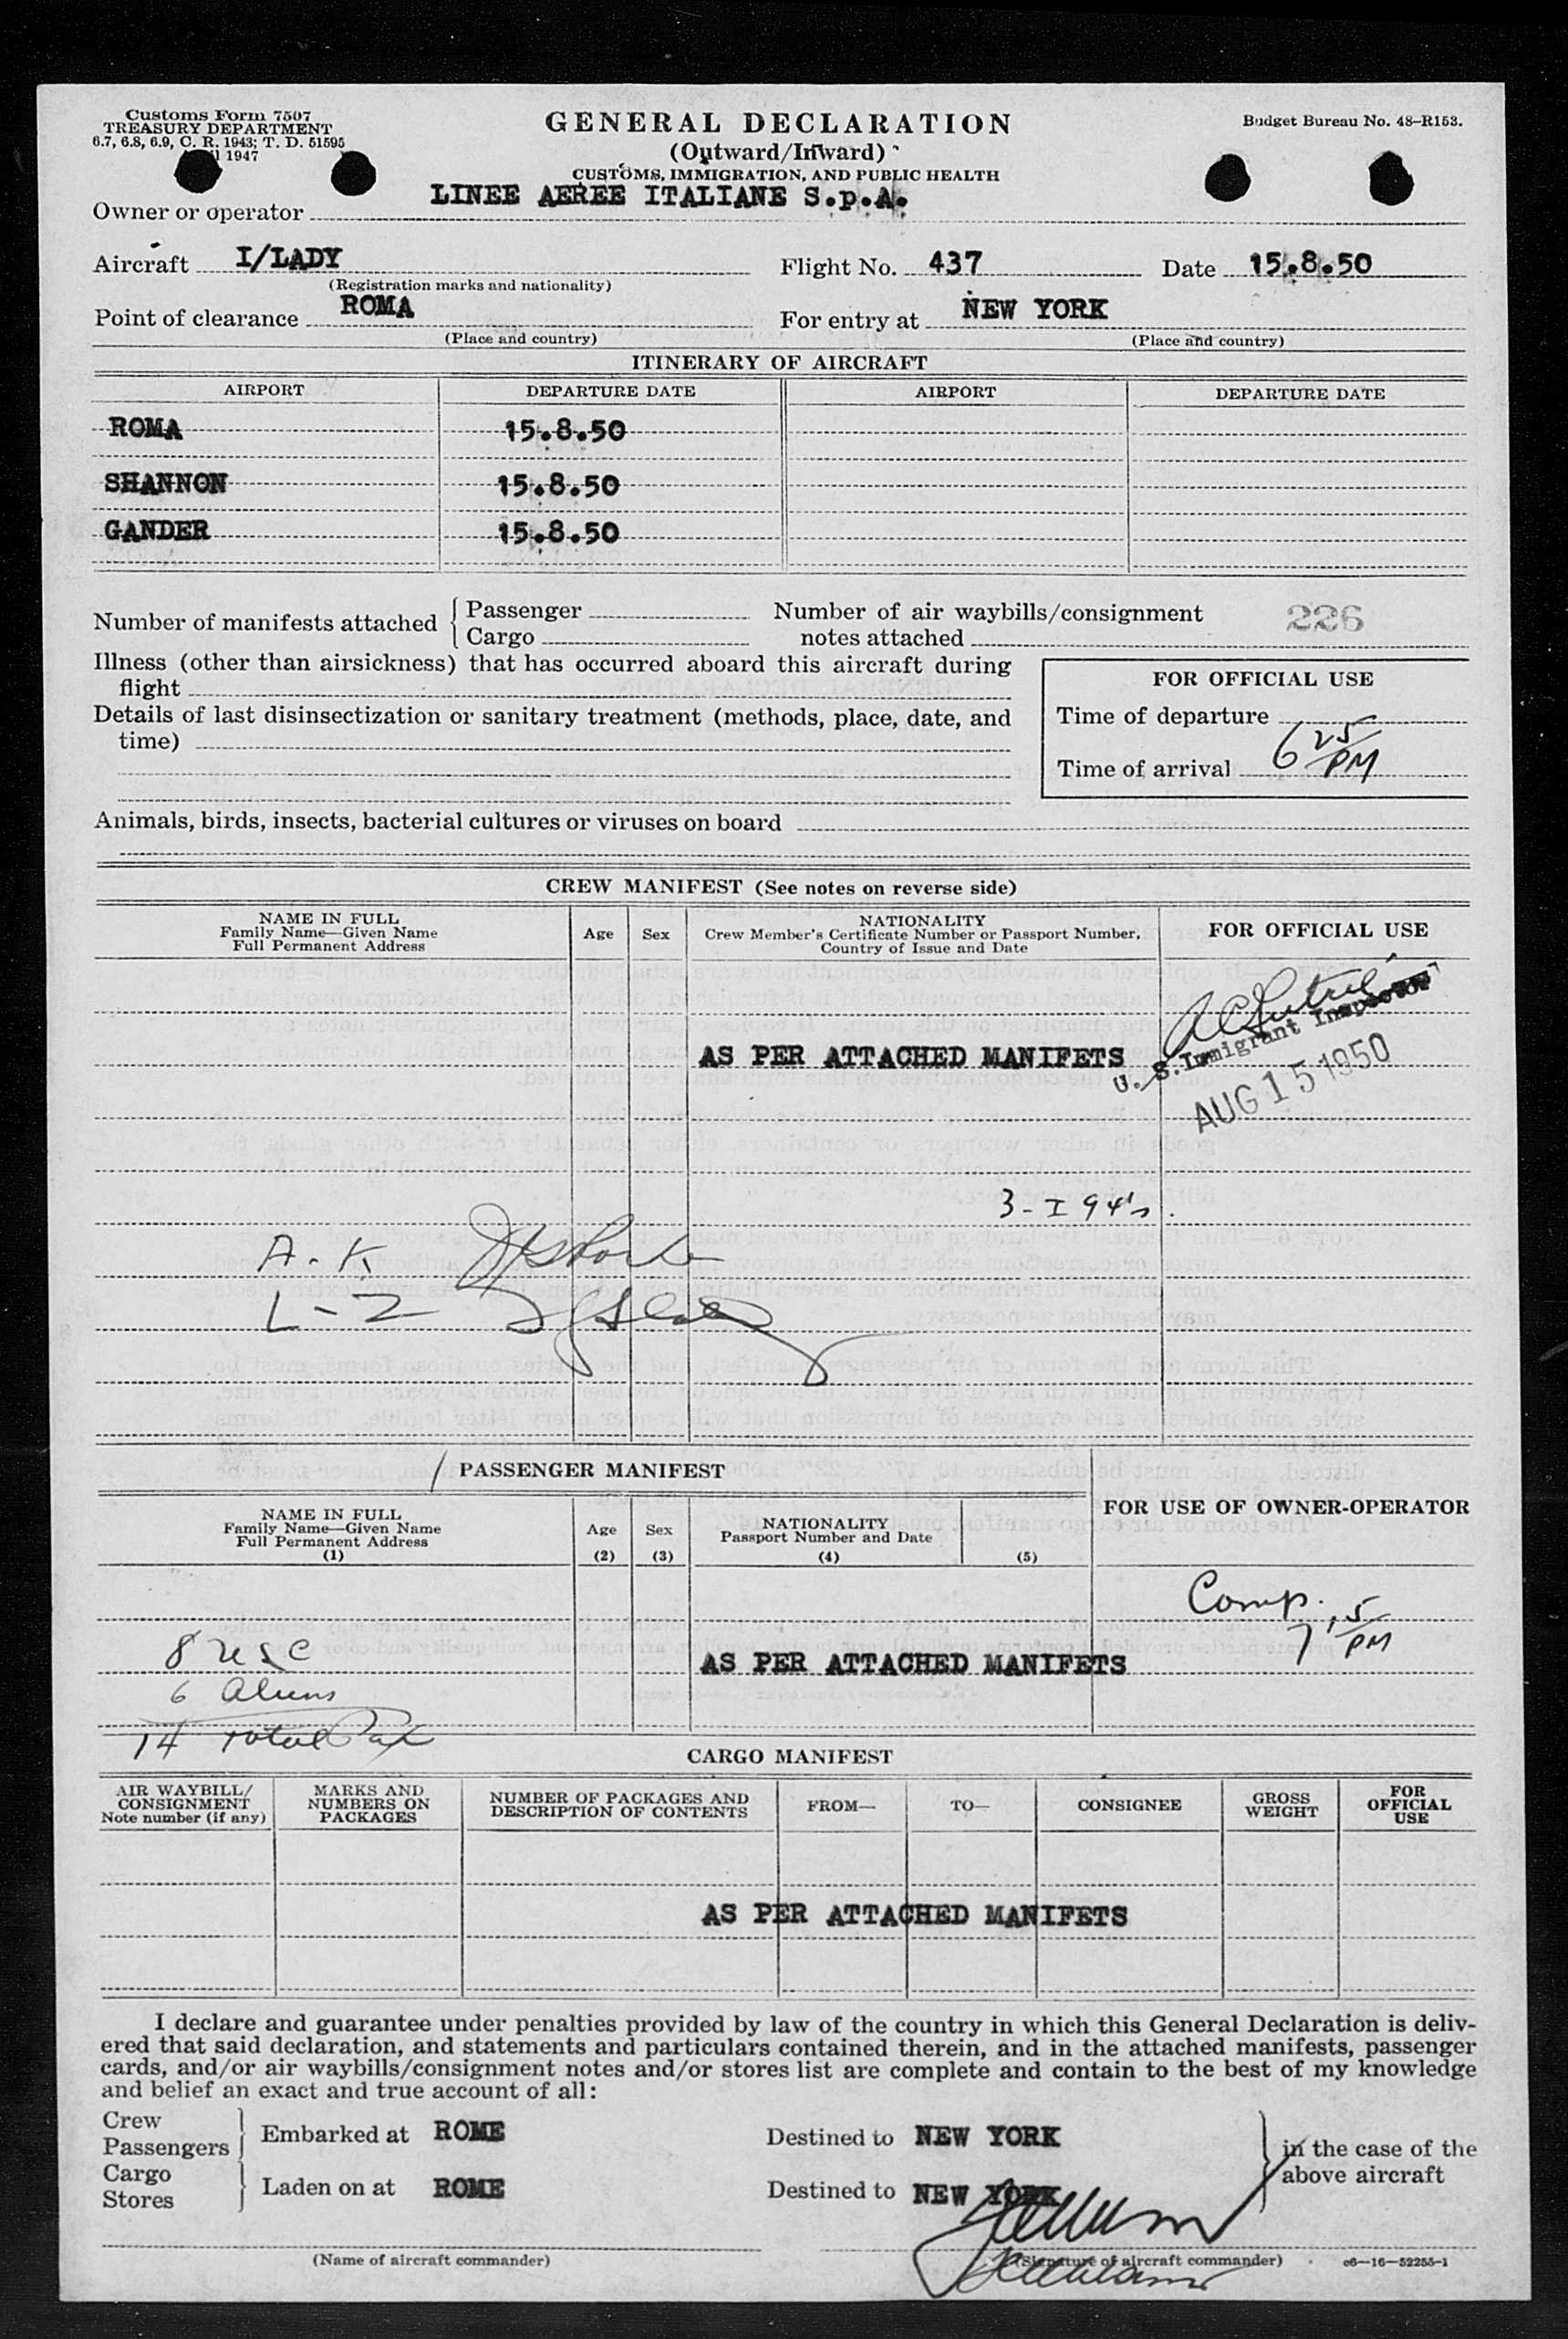 Customs Form 7507
TREASURY DEPARTMENT
6.7, 6.8, 6.9, C. R. 1943; T. D. 51595
1947
GENERAL DECLARATION
(Outward/Inward)
CUSTOMS, IMMIGRATION, AND PUBLIC HEALTH
Budget Bureau No. 48–R153.
Owner or operator LINEE AEREE ITALIANE S.p.A.
Aircraft I/LADY Flight No. 437 Date 15.8.50
(Registration marks and nationality)
Point of clearance ROMA For entry at NEW YORK
(Place and country) (Place and country)
ITINERARY OF AIRCRAFT
AIRPORT DEPARTURE DATE AIRPORT DEPARTURE DATE
ROMA 15.8.50
SHANNON 15.8.50
GANDER 15.8.50
Number of manifests attached { Passenger
Cargo
Number of air waybills/consignment
notes attached
226
Illness (other than airsickness) that has occurred aboard this aircraft during
flight
Details of last disinsectization or sanitary treatment (methods, place, date, and
time)
FOR OFFICIAL USE
Time of departure
Time of arrival 6 25/PM
Animals, birds, insects, bacterial cultures or viruses on board
CREW MANIFEST (See notes on reverse side)
NAME IN FULL
Family Name—Given Name
Full Permanent Address
Age
Sex
NATIONALITY
Crew Member's Certificate Number or Passport Number,
Country of Issue and Date
FOR OFFICIAL USE
U. S. Immigrant Inspector
AS PER ATTACHED MANIFETS
AUG 15 1950
3 - I 94's
A. K
L - 2
PASSENGER MANIFEST
NAME IN FULL
Family Name—Given Name
Full Permanent Address
(1)
Age
(2)
Sex
(3)
NATIONALITY
Passport Number and Date
(4)
(5)
FOR USE OF OWNER-OPERATOR
Comp.
7 15/PM
8 USC
AS PER ATTACHED MANIFETS
6 Aliens
14 Total Pax
CARGO MANIFEST
AIR WAYBILL/
CONSIGNMENT
Note number (if any)
MARKS AND
NUMBERS ON
PACKAGES
NUMBER OF PACKAGES AND
DESCRIPTION OF CONTENTS
FROM—
TO—
CONSIGNEE
GROSS
WEIGHT
FOR
OFFICIAL
USE
AS PER ATTACHED MANIFETS
I declare and guarantee under penalties provided by law of the country in which this General Declaration is deliv-
ered that said declaration, and statements and particulars contained therein, and in the attached manifests, passenger
cards, and/or air waybills/consignment notes and/or stores list are complete and contain to the best of my knowledge
and belief an exact and true account of all:
Crew
Passengers } Embarked at ROME Destined to NEW YORK
Cargo
Stores } Laden on at ROME Destined to NEW YORK
in the case of the
above aircraft
(Name of aircraft commander)
(Signature of aircraft commander)
c6—16—52255-1